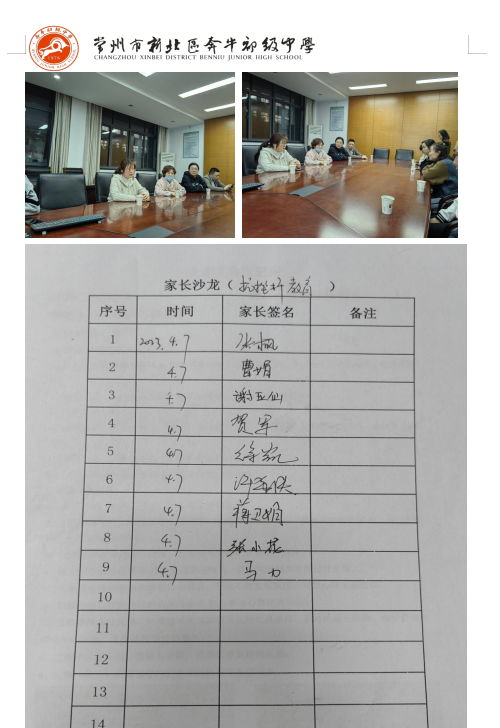 常州市新北区奔牛初级中学
CHANGZHOU XINBEI DISTRICT BENNIU JUNIOR HIGH SCHOOL
家长沙龙（抗挫折教育）
序号 时间 家长签名 备注
1 2023.4.7
2 4.7 曹娟
3 4.7 谢亚仙
4 4.7 贺军
5 4.7
6 4.7
7 4.7 蒋卫娟
8 4.7 张小花
9 4.7 马力
10
11
12
13
14